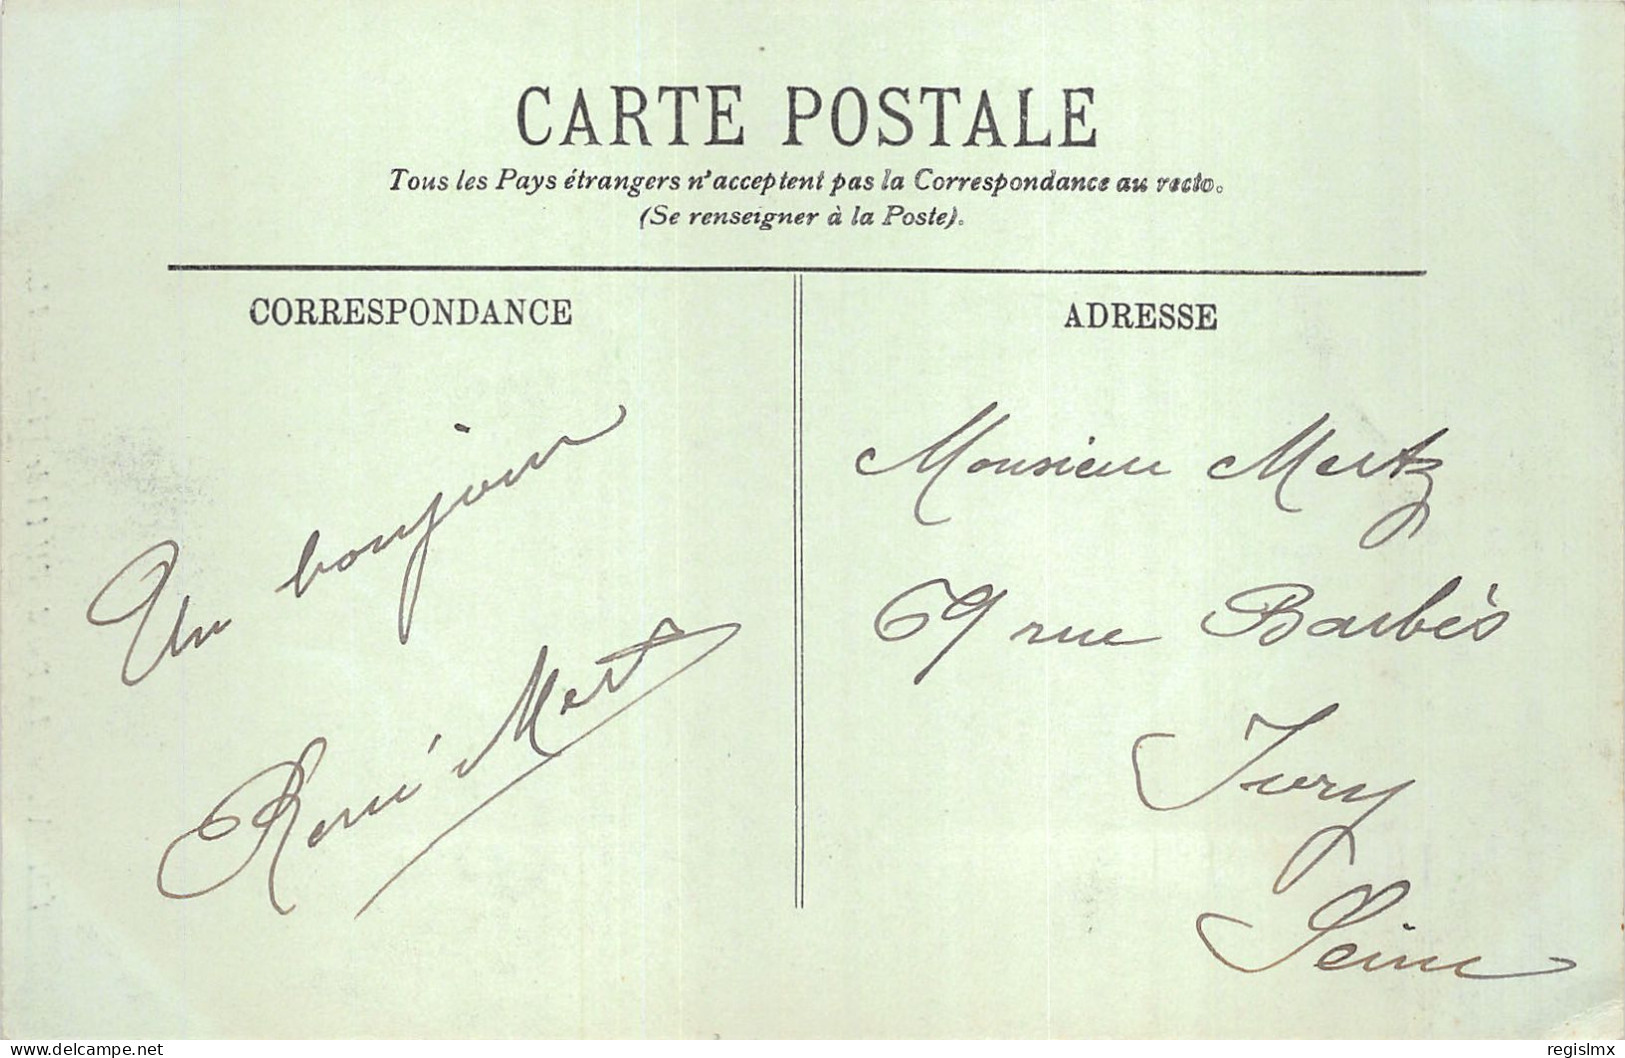 CARTE POSTALE
Tous les Pays étrangers n'acceptent pas la Correspondance au recto.
(Se renseigner à la Poste).
CORRESPONDANCE
Un bonjour
René Mert
ADRESSE
Monsieur Mertz
69 rue Barbès
Ivry
Seine
delcampe.net
regislmx